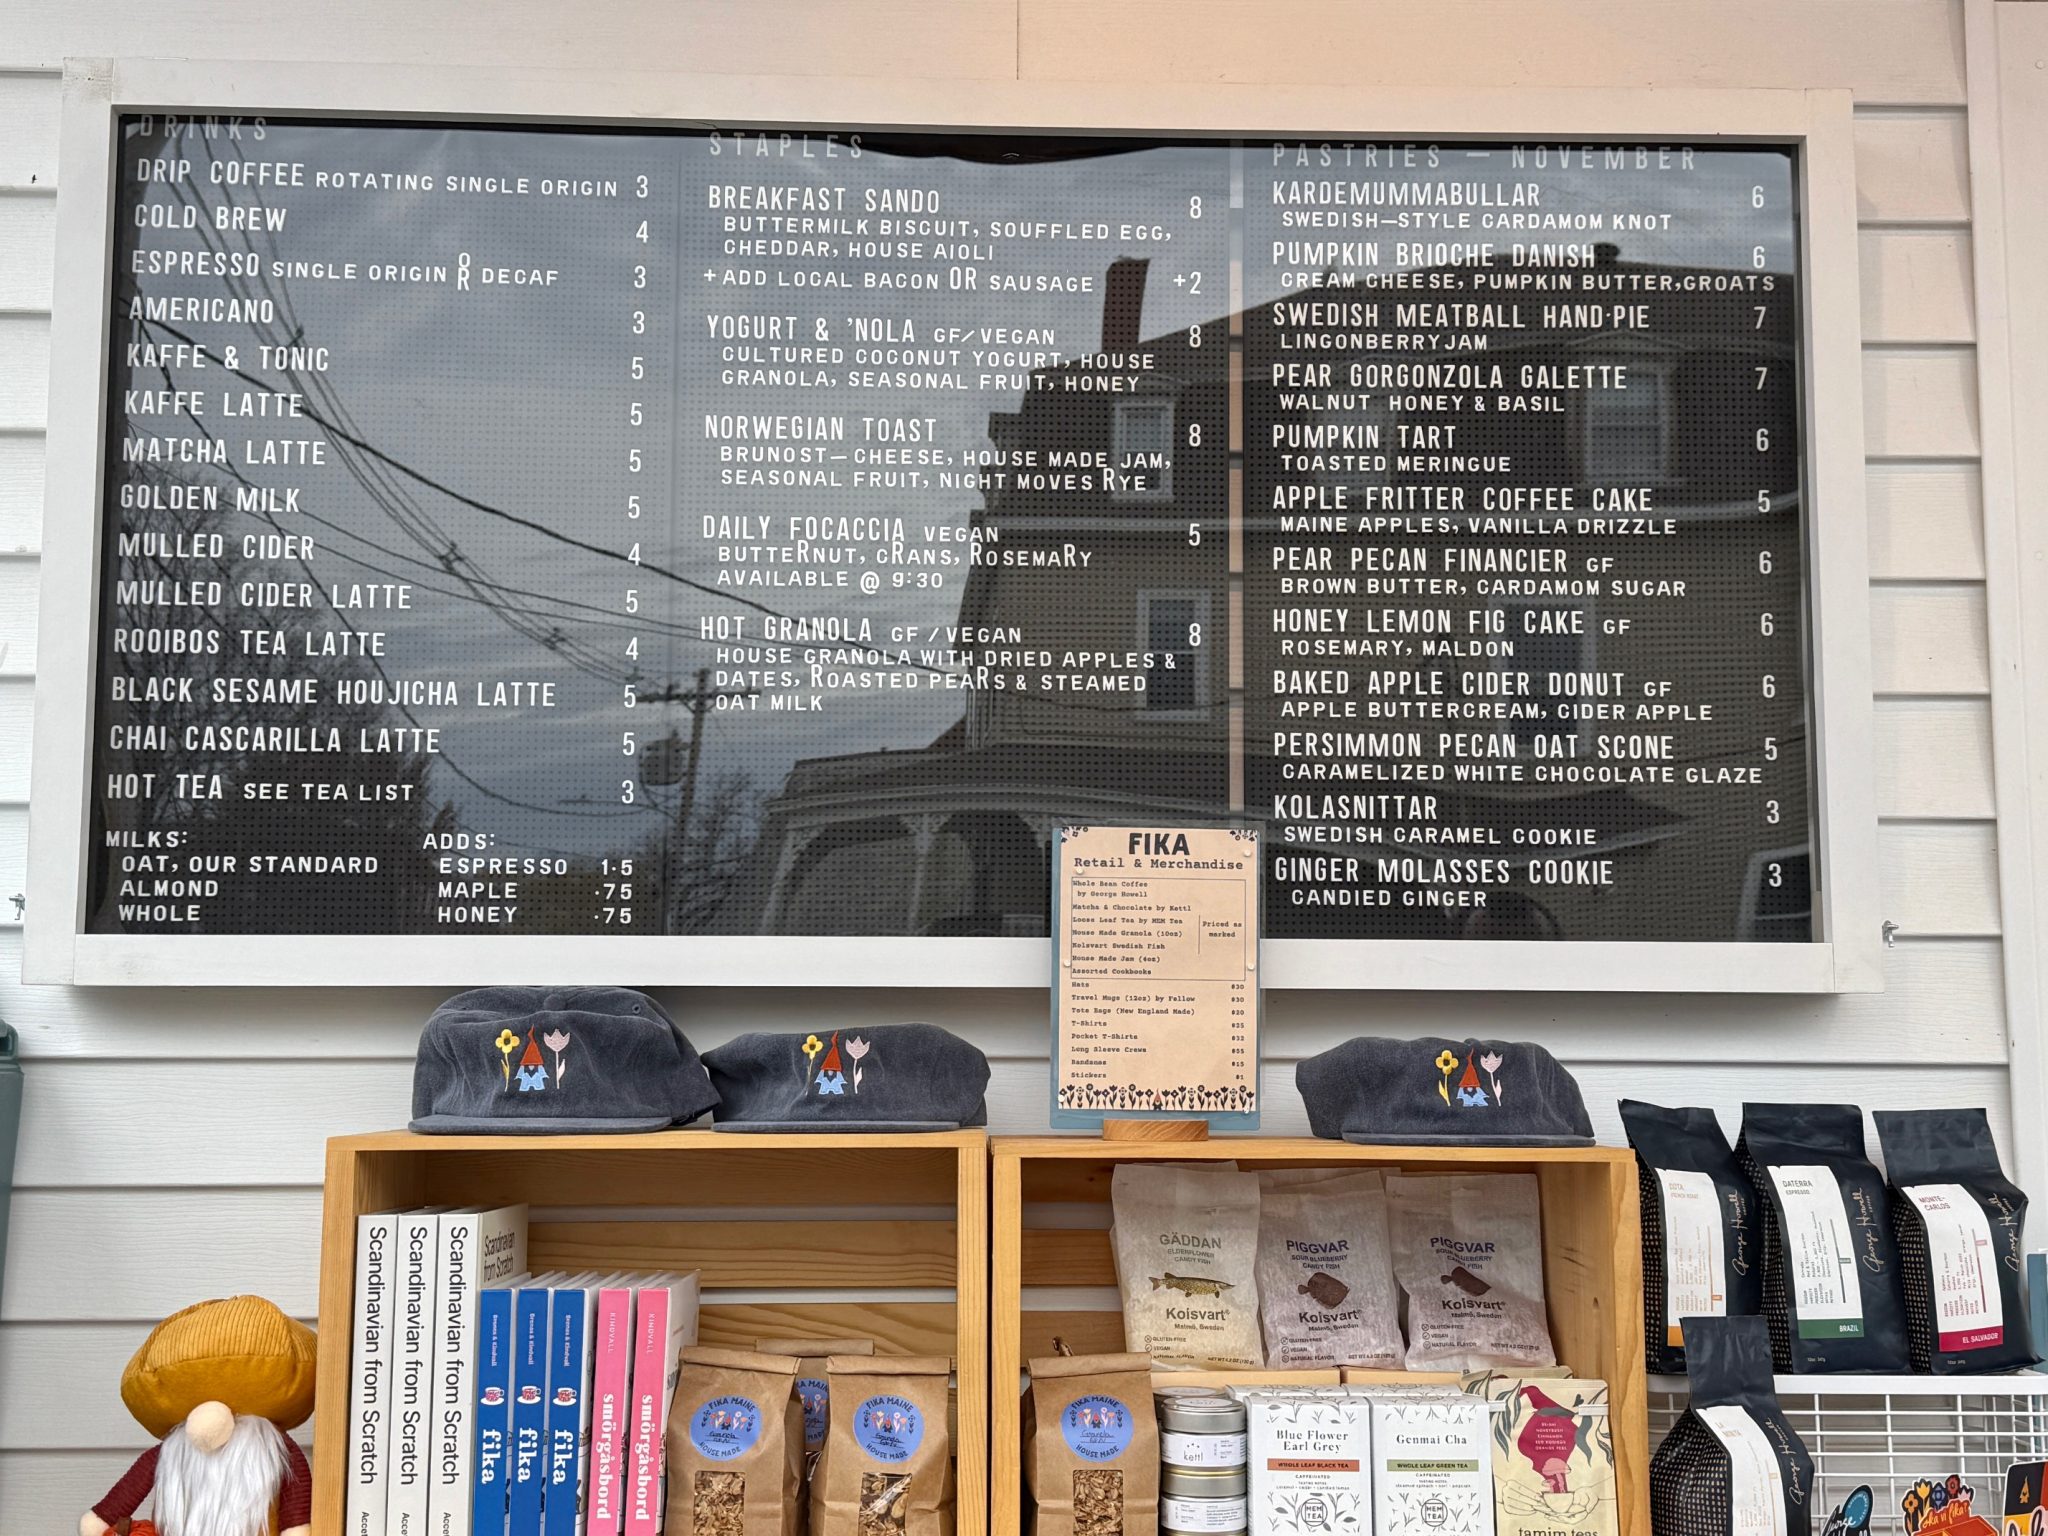 DRINKS
DRIP COFFEE ROTATING SINGLE ORIGIN 3
COLD BREW 4
ESPRESSO SINGLE ORIGIN OR DECAF 3
AMERICANO 3
KAFFE & TONIC 5
KAFFE LATTE 5
MATCHA LATTE 5
GOLDEN MILK 5
MULLED CIDER 4
MULLED CIDER LATTE 5
ROOIBOS TEA LATTE 4
BLACK SESAME HOUJICHA LATTE 5
CHAI CASCARILLA LATTE 5
HOT TEA SEE TEA LIST 3
MILKS:
OAT, OUR STANDARD
ALMOND
WHOLE
ADDS:
ESPRESSO 1.5
MAPLE .75
HONEY .75
STAPLES
BREAKFAST SANDO 8
BUTTERMILK BISCUIT, SOUFFLED EGG,
CHEDDAR, HOUSE AIOLI
+ADD LOCAL BACON OR SAUSAGE +2
YOGURT & 'NOLA GF/VEGAN 8
CULTURED COCONUT YOGURT, HOUSE
GRANOLA, SEASONAL FRUIT, HONEY
NORWEGIAN TOAST 8
BRUNOST—CHEESE, HOUSE MADE JAM,
SEASONAL FRUIT, NIGHT MOVES RYE
DAILY FOCACCIA VEGAN 5
BUTTERNUT, CRANS, ROSEMARY
AVAILABLE @ 9:30
HOT GRANOLA GF/VEGAN 8
HOUSE GRANOLA WITH DRIED APPLES &
DATES, ROASTED PEARS & STEAMED
OAT MILK
PASTRIES — NOVEMBER
KARDEMUMMABULLAR 6
SWEDISH—STYLE CARDAMOM KNOT
PUMPKIN BRIOCHE DANISH 6
CREAM CHEESE, PUMPKIN BUTTER,GROATS
SWEDISH MEATBALL HAND·PIE 7
LINGONBERRY JAM
PEAR GORGONZOLA GALETTE 7
WALNUT HONEY & BASIL
PUMPKIN TART 6
TOASTED MERINGUE
APPLE FRITTER COFFEE CAKE 5
MAINE APPLES, VANILLA DRIZZLE
PEAR PECAN FINANCIER GF 6
BROWN BUTTER, CARDAMOM SUGAR
HONEY LEMON FIG CAKE GF 6
ROSEMARY, MALDON
BAKED APPLE CIDER DONUT GF 6
APPLE BUTTERCREAM, CIDER APPLE
PERSIMMON PECAN OAT SCONE 5
CARAMELIZED WHITE CHOCOLATE GLAZE
KOLASNITTAR 3
SWEDISH CARAMEL COOKIE
GINGER MOLASSES COOKIE 3
CANDIED GINGER
FIKA
Retail & Merchandise
Whole Bean Coffee
by George Howell
Matcha & Chocolate by Kettl
Loose Leaf Tea by MEM Tea
House Made Granola (10oz)
Kolsvart Swedish Fish
House Made Jam (4oz)
Assorted Cookbooks
Priced as
marked
Hats $30
Travel Mugs (12oz) by Fellow $30
Tote Bags (New England Made) $20
T-Shirts $25
Pocket T-Shirts $32
Long Sleeve Crews $55
Bandanas $15
Stickers $1
Scandinavian from Scratch
Scandinavian from Scratch
Scandinavian from Scratch
Scandinavian
from Scratch
Brones & Kindvall
fika
Brones & Kindvall
fika
Brones & Kindvall
fika
KINDVALL
smörgåsbord
KINDVALL
smörgåsbord
FIKA MAINE
Granola
HOUSE MADE
FIKA MAINE
Granola
HOUSE MADE
FIKA MAINE
Granola
HOUSE MADE
GÄDDAN
ELDERFLOWER
CANDY FISH
Kolsvart®
Malmö, Sweden
GLUTEN-FREE
VEGAN
NATURAL FLAVOR
PIGGVAR
SOUR BLUEBERRY
CANDY FISH
Kolsvart®
Malmö, Sweden
GLUTEN-FREE
VEGAN
NATURAL FLAVOR
PIGGVAR
SOUR BLUEBERRY
CANDY FISH
Kolsvart®
Malmö, Sweden
GLUTEN-FREE
VEGAN
NATURAL FLAVOR
kettl
Blue Flower
Earl Grey
WHOLE LEAF BLACK TEA
CAFFEINATED
MEM
TEA
Genmai Cha
WHOLE LEAF GREEN TEA
CAFFEINATED
MEM
TEA
HONEYBUSH
CINNAMON
ORANGE PEEL
tamim teas
George Howell
DATERRA
ESPRESSO
BRAZIL
George Howell
MONTE-
CARLOS
EL SALVADOR
George Howell